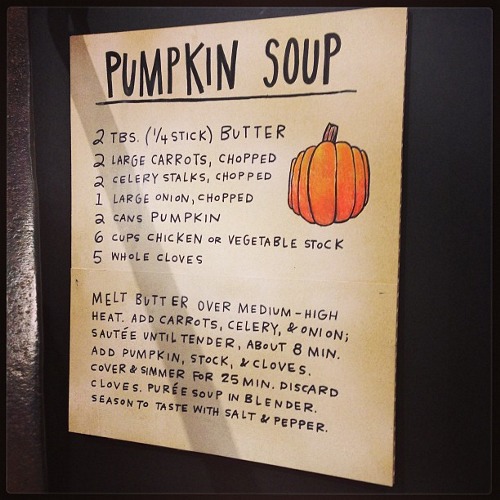 PUMPKIN SOUP
2 TBS. (1/4 STICK) BUTTER
2 LARGE CARROTS, CHOPPED
2 CELERY STALKS, CHOPPED
1 LARGE ONION, CHOPPED
2 CANS PUMPKIN
6 CUPS CHICKEN OR VEGETABLE STOCK
5 WHOLE CLOVES
MELT BUTTER OVER MEDIUM-HIGH
HEAT. ADD CARROTS, CELERY, & ONION;
SAUTÉE UNTIL TENDER, ABOUT 8 MIN.
ADD PUMPKIN, STOCK, & CLOVES.
COVER & SIMMER FOR 25 MIN. DISCARD
CLOVES. PURÉE SOUP IN BLENDER.
SEASON TO TASTE WITH SALT & PEPPER.